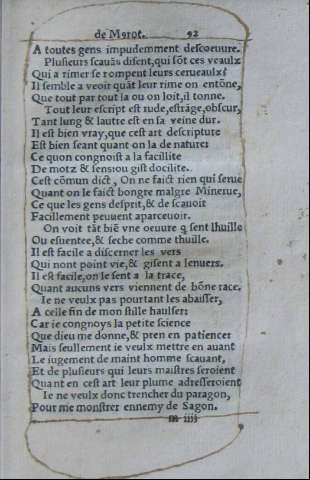 de Marot. 92
A toutes gens impudemment descoeuure.
Plusieurs scauãs disent, qui sõt ces veaulx
Qui a rimer se rompent leurs cerueaulx?
Il semble a veoir quãt leur rime on entõne,
Que tout par tout la ou on loit, il tonne.
Tout leur escript est rude, estrãge, obscur,
Tant lung & lautre est en sa veine dur.
Il est bien vray, que cest art descripture
Est bien seant quant on la de nature:
Ce quon congnoist a la facillite
De motz & sensiou gist docilite.
Cest cõmun dict, On ne faict rien qui serue
Quant on le faict bongre malgre Minerue,
Ce que les gens desprit, & de scauoir
Facillement peuuent aparceuoir.
On voit tãt biẽ vne oeuure q̃ sent lhuille
Ou esuentee, & seche comme thuille.
Il est facile a discerner les vers
Qui nont point vie, & gisent a lenuers.
Il est facile, on le sent a la trace,
Quant aucuns vers viennent de bõne race.
Ie ne veulx pas pourtant les abaisser,
A celle fin de mon stille haulser:
Car ie congnoys la petite science
Que dieu me donne, & pren en patience:
Mais seullement ie veulx mettre en auant
Le iugement de maint homme scauant,
Et de plusieurs qui leurs maistres seroient
Quant en cest art leur plume adresseroient
Ie ne veulx donc trencher du paragon,
Pour me monstrer ennemy de Sagon.
m iiij